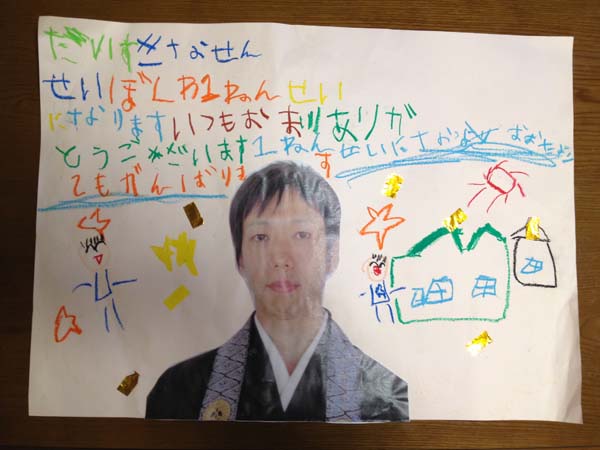 だいすきなせん
せいぼくわ1ねんせい
になりますいつもおまいりありが
とうございます1ねんせいになっ
てもがんばります